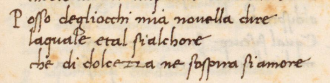 P osso degliocchi mia novella dire
laquale etal sialchore
che di dolcezza ne sospira siamore